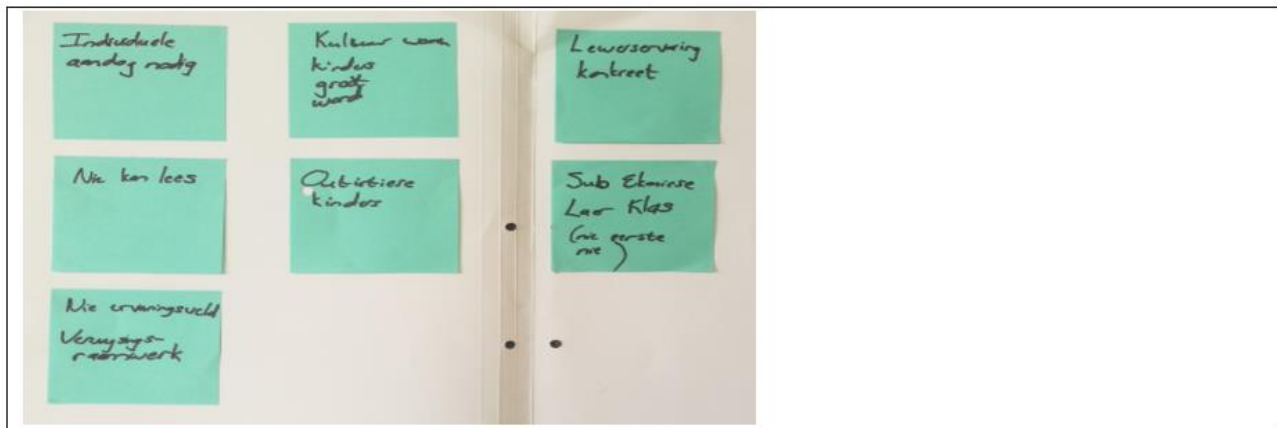 Individuele
aandag nodig
Kultuur waarin
kinders
groot
word
Lewenservaring
konkreet
Nie kan lees
Outistiese
kinders
Sub Ekonomiese
Laer Klas
(nie eerste
nie)
Nie ervaringsveld
Verwysings-
raamwerk